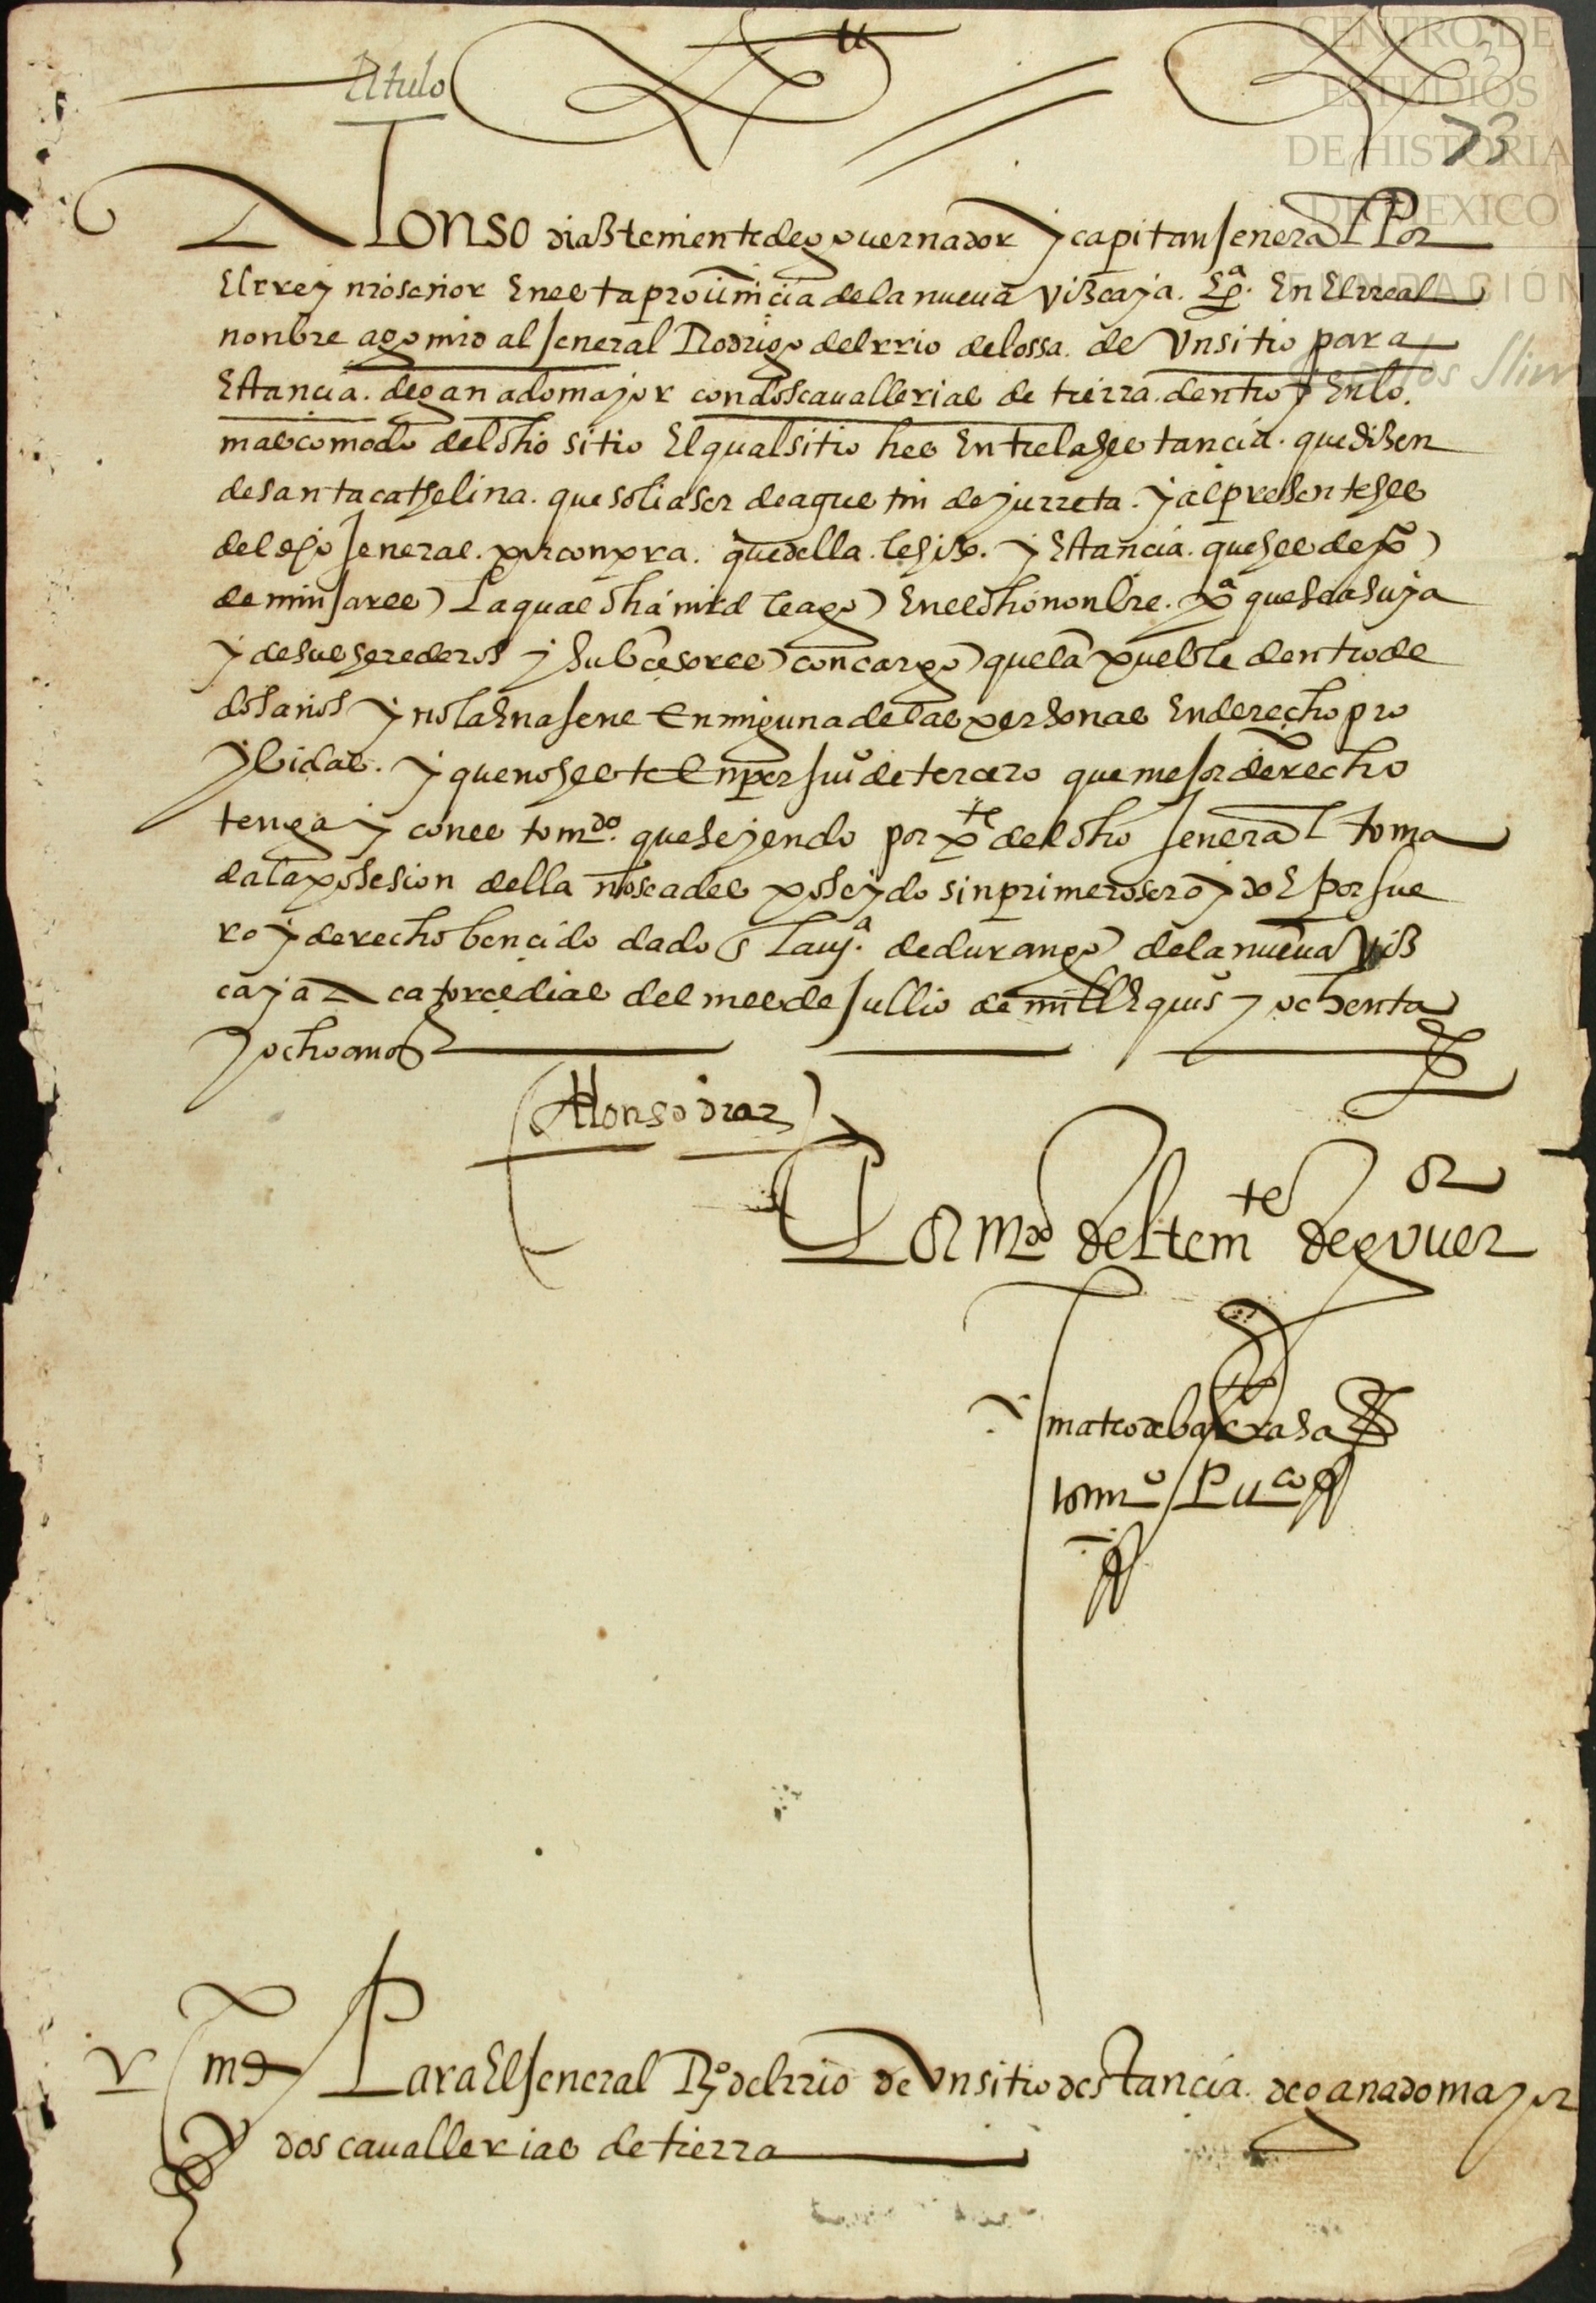 Titulo
73
CENTRO DE
ESTUDIOS
DE HISTORIA
DE MEXICO
FUNDACIÓN
Carlos Slim
Alonso diaz teniente de governador y capitan jeneral Por
El rrey nro señor En esta provincia de la nueva Vizcaya. Ea. En El rreal
nonbre ago mrd al jeneral Rodrigo del rrio de lossa. de Un sitio para
Estancia. de ganado mayor con dos cavallerias de tierra. dentro y En lo.
mas comodo del dho sitio El qual sitio hes Entre la hestancia. que dizen
de santa cathelina. que solia ser de agustin de jurreta. y al presente hes
del dho jeneral. por conpra. que della. le hizo. y Estancia. que hes de Fco
de minjares La qual dha mrd le ago En el dho nonbre. pa que sea suya
y de sus herederos y subcesores con cargo que la pueble dentro de
dos años y no la Enajene En ninguna de las personas En derecho pro
ybidas. y que no heste En perjuio de tercero que mejor derecho
tenga y con es tomdo. que seyendo por pte del dho jeneral toma
da la posesion della no sea des poseydo sin primero ser oydo E por fue
ro y derecho bencido dado En la uya. de durango de la nueva Viz
caya a catorce dias del mes de jullio de mill E quis y ochenta
y ocho anos
Alonso diaz
Por mdo del tente de gover or
mateo de barrasa
ssno Puco
md Para El jeneral Ro del rrio de Un sitio destancia. de ganado mayor
y dos cavallerias de tierra